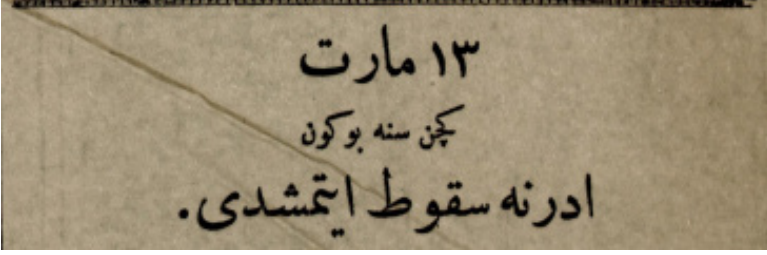 ١٣ مارت
كچن سنه بوكون
ادرنه سقوط ایتمشدی.